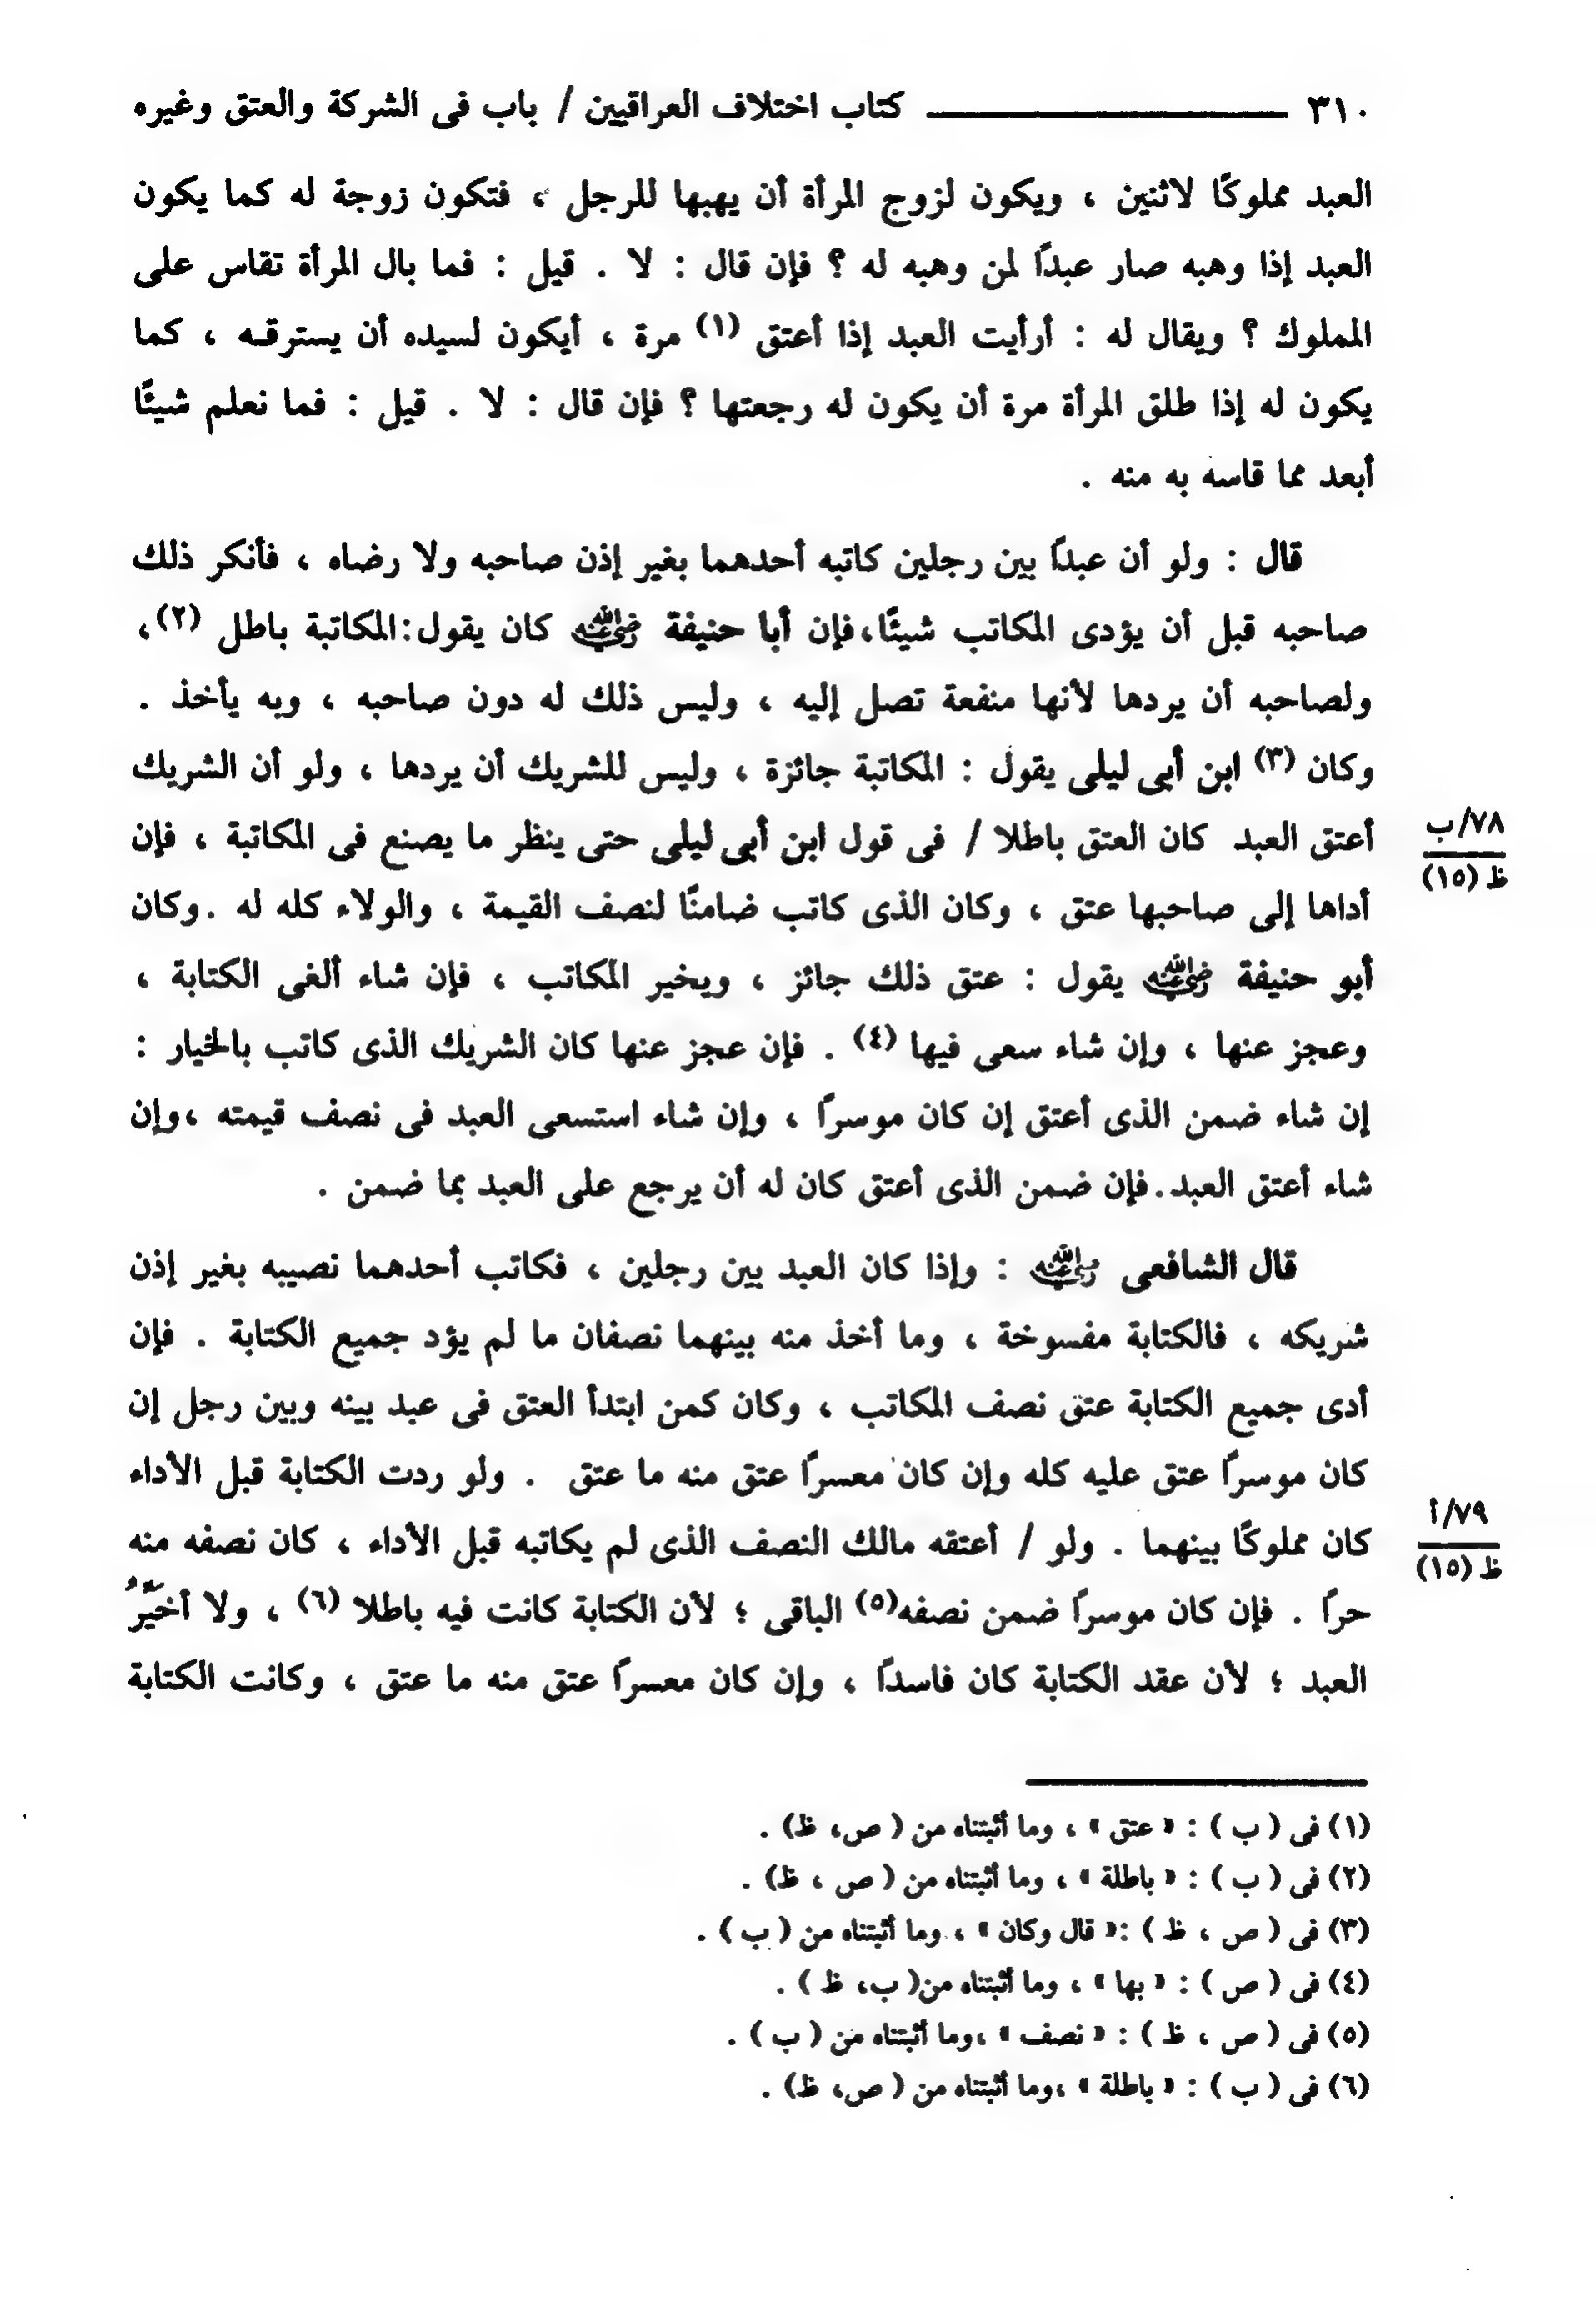 ٣١٠ ـــــــــ كتاب اختلاف العراقيين / باب فى الشركة والعتق وغيره
العبد مملوكًا لاثنين ، ويكون لزوج المرأة أن يهبها للرجل ، فتكون زوجة له كما يكون
العبد إذا وهبه صار عبدًا لمن وهبه له ؟ فإن قال : لا . قيل : فما بال المرأة تقاس على
المملوك ؟ ويقال له : أرأيت العبد إذا أعتق (١) مرة ، أيكون لسيده أن يسترقه ، كما
يكون له إذا طلق المرأة مرة أن يكون له رجعتها ؟ فإن قال : لا . قيل : فما نعلم شيئًا
أبعد مما قاسه به منه .
قال : ولو أن عبدًا بين رجلين كاتبه أحدهما بغير إذن صاحبه ولا رضاه ، فأنكر ذلك
صاحبه قبل أن يؤدى المكاتب شيئًا،فإن أبا حنيفة رضي الله عنه كان يقول:المكاتبة باطل (٢)،
ولصاحبه أن يردها لأنها منفعة تصل إليه ، وليس ذلك له دون صاحبه ، وبه يأخذ .
وكان (٣) ابن أبى ليلى يقول : المكاتبة جائزة ، وليس للشريك أن يردها ، ولو أن الشريك
أعتق العبد كان العتق باطلا / فى قول ابن أبى ليلى حتى ينظر ما يصنع فى المكاتبة ، فإن
٧٨/ب
ظ (١٥)
أداها إلى صاحبها عتق ، وكان الذى كاتب ضامنًا لنصف القيمة ، والولاء كله له .وكان
أبو حنيفة رضي الله عنه يقول : عتق ذلك جائز ، ويخير المكاتب ، فإن شاء ألغى الكتابة ،
وعجز عنها ، وإن شاء سعى فيها (٤) . فإن عجز عنها كان الشريك الذى كاتب بالخيار :
إن شاء ضمن الذى أعتق إن كان موسرًا ، وإن شاء استسعى العبد فى نصف قيمته ،وإن
شاء أعتق العبد.فإن ضمن الذى أعتق كان له أن يرجع على العبد بما ضمن .
قال الشافعى رضي الله عنه : وإذا كان العبد بين رجلين ، فكاتب أحدهما نصيبه بغير إذن
شريكه ، فالكتابة مفسوخة ، وما أخذ منه بينهما نصفان ما لم يؤد جميع الكتابة . فإن
أدى جميع الكتابة عتق نصف المكاتب ، وكان كمن ابتدأ العتق فى عبد بينه وبين رجل إن
كان موسرًا عتق عليه كله وإن كان معسرًا عتق منه ما عتق . ولو ردت الكتابة قبل الأداء
كان مملوكًا بينهما . ولو / أعتقه مالك النصف الذى لم يكاتبه قبل الأداء ، كان نصفه منه
٧٩/أ
ظ (١٥)
حرًا . فإن كان موسرًا ضمن نصفه(٥) الباقى ؛ لأن الكتابة كانت فيه باطلا (٦) ، ولا أخيِّرُ
العبد ؛ لأن عقد الكتابة كان فاسدًا ، وإن كان معسرًا عتق منه ما عتق ، وكانت الكتابة
(١) فى ( ب ) : « عتق » ، وما أثبتناه من ( ص، ظ) .
(٢) فى ( ب ) : « باطلة » ، وما أثبتناه من ( ص ، ظ) .
(٣) فى ( ص ، ظ ) :« قال وكان » ، وما أثبتناه من ( ب ) .
(٤) فى ( ص ) : « بها » ، وما أثبتناه من( ب، ظ ) .
(٥) فى ( ص ، ظ ) : « نصف » ،وما أثبتناه من ( ب ) .
(٦) فى ( ب ) : « باطلة » ،وما أثبتناه من ( ص، ظ) .